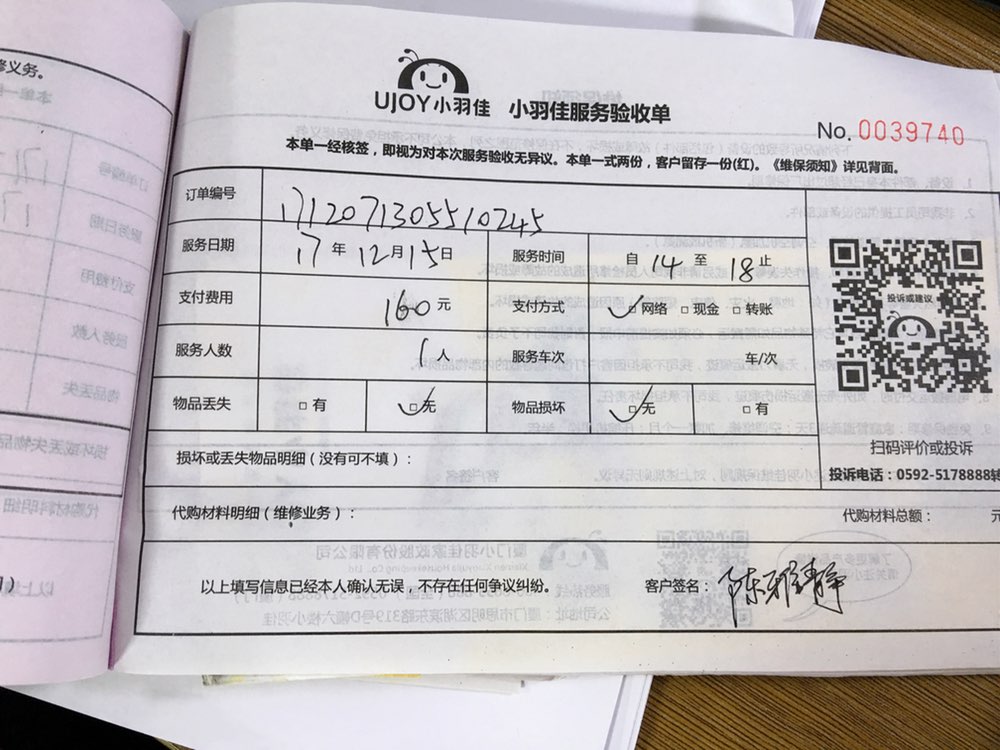 修义务。
UJOY小羽佳 小羽佳服务验收单
No. 0039740
本单一经核签，即视为对本次服务验收无异议。本单一式两份，客户留存一份(红)。《维保须知》详见背面。
订单编号 171207130551０245
服务日期 17 年 12 月 15 日 服务时间 自 14 至 18 止
支付费用 160 元 支付方式 ☑网络 □现金 □转账
服务人数 1 人 服务车次 车/次
物品丢失 □有 ☑无 物品损坏 ☑无 □有
投诉或建议
扫码评价或投诉
投诉电话：0592-5178888转
损坏或丢失物品明细（没有可不填）：
代购材料明细（维修业务）： 代购材料总额： 元
以上填写信息已经本人确认无误，不存在任何争议纠纷。 客户签名：陈雅静